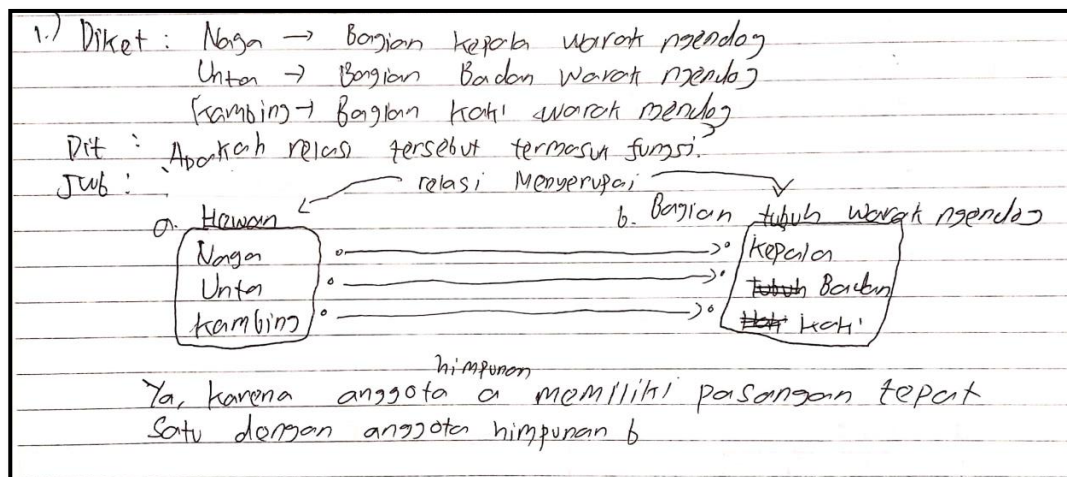 1.) Diket : Naga → Bagian kepala warak ngendog
Unta → Bagian Badan warak ngendog
Kambing → Bagian Kaki warak ngendog
Dit : Apakah relasi tersebut termasuk fungsi?
Jwb :
relasi Menyerupai
a. Hewan
b. Bagian tubuh warak ngendog
Naga → kepala
Unta → tubuh Badan
Kambing → Kaki
himpunan
Ya, karena anggota a memiliki pasangan tepat
Satu dengan anggota himpunan b